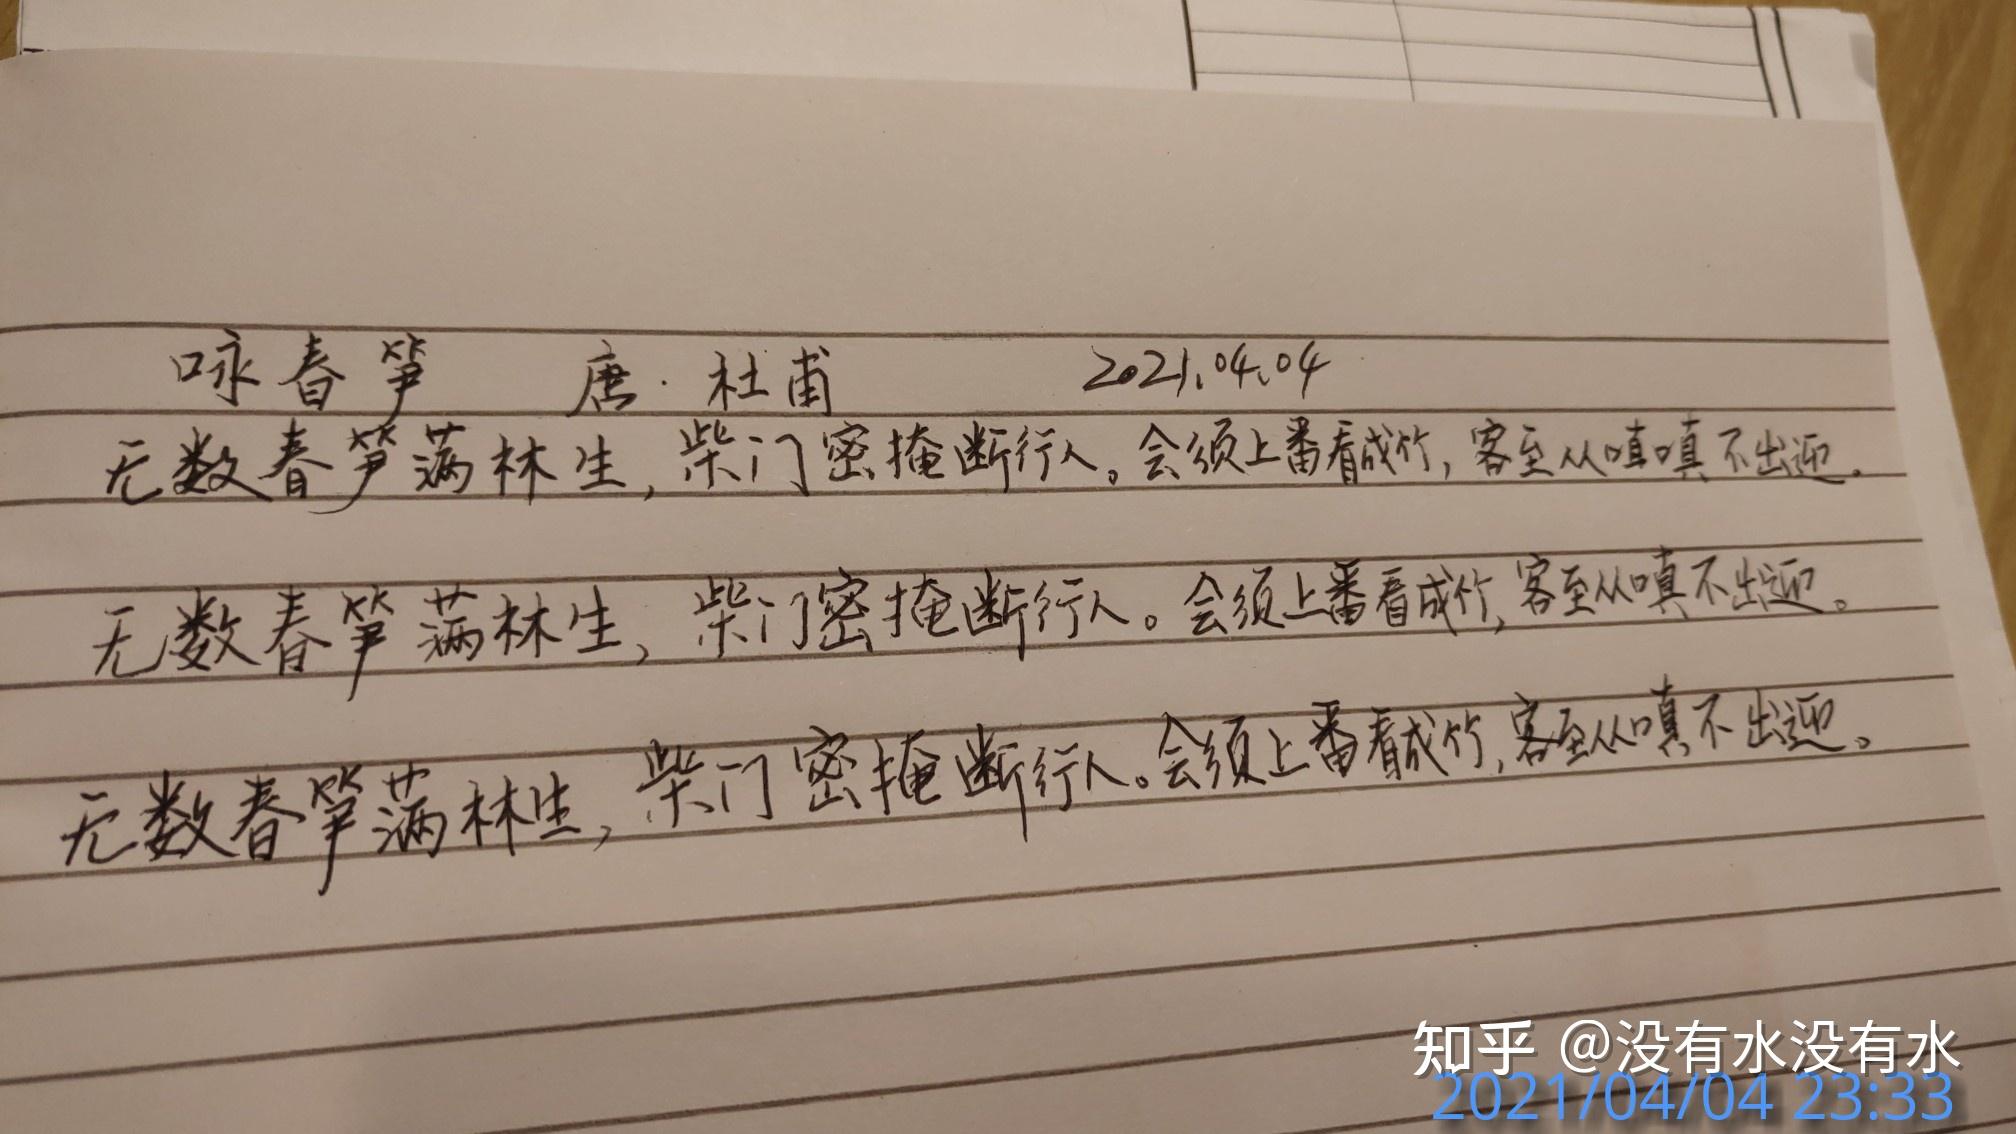 咏春笋 唐·杜甫 2021.04.04
无数春笋满林生,柴门密掩断行人。会须上番看成竹,客至从嗔嗔不出迎。
无数春笋满林生,柴门密掩断行人。会须上番看成竹,客至从嗔不出迎。
无数春笋满林生,柴门密掩断行人。会须上番看成竹,客至从嗔不出迎。
知乎 @没有水没有水
2021/04/04 23:33